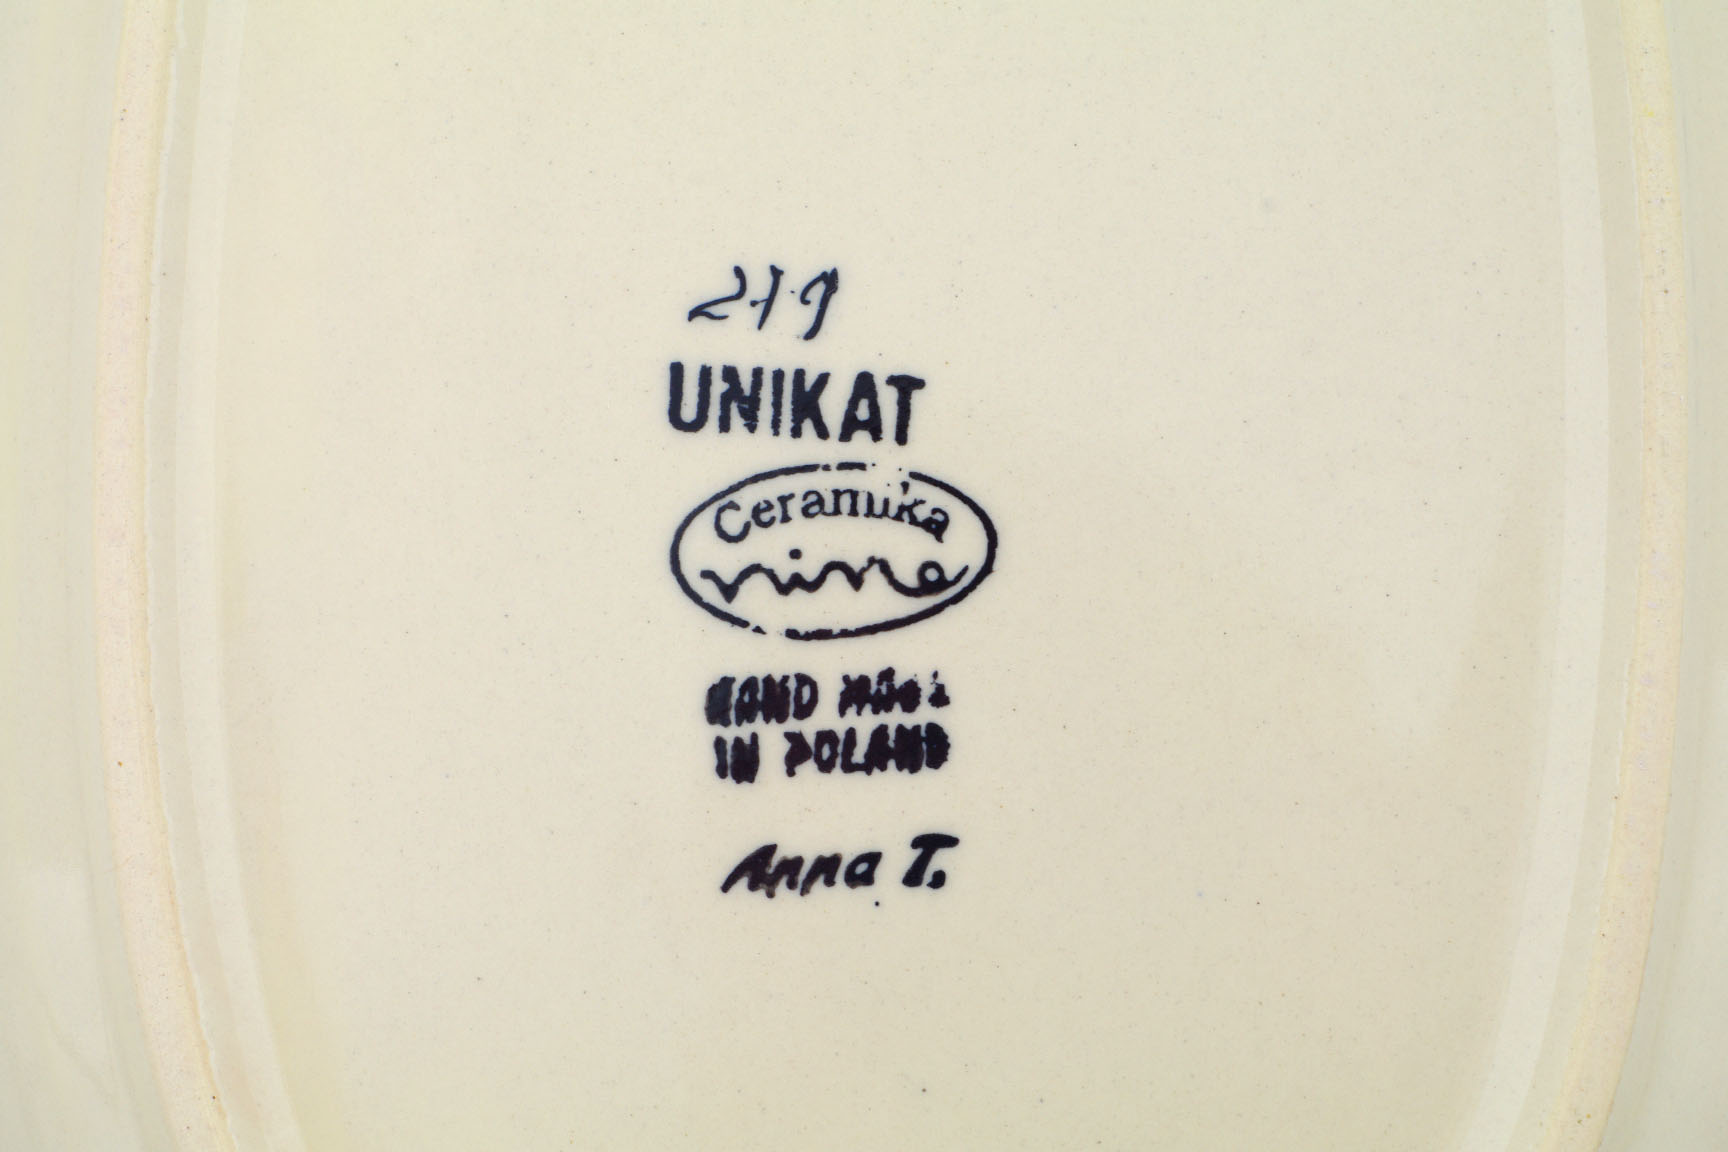 219
UNIKAT
Ceramika
nina
HAND MADE
IN POLAND
Anna T.